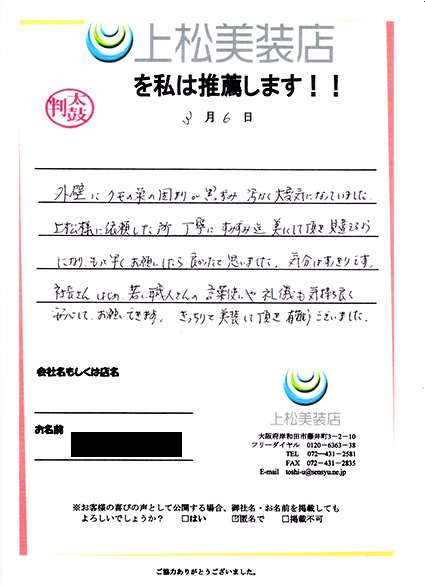 上松美装店
を私は推薦します！！
太鼓判
3月6日
外壁にクモの巣の固りや黒ずみ 汚なく大変気になっていました。
上松様に依頼した所 丁寧にすみずみ迄 美にして頂き見違えるよう
になり、もっと早くお願いしたら良かたと思いました。気分はすっきりです。
社長さんはじめ、若い職人さんの言葉使いや礼儀も気持ち良く
安心して、お願いできます。 きっちりと美装して頂き有難うございました。
会社名もしくは店名
お名前
上松美装店
大阪府岸和田市藤井町3－2－10
フリーダイヤル 0120－6363－38
TEL 072－431－2581
FAX 072－431－2835
E-mail toshi-u@sensyu.ne.jp
※お客様の喜びの声として公開する場合、御社名・お名前を掲載しても
よろしいでしょうか？ □はい ☑匿名で □掲載不可
ご協力ありがとうございました。